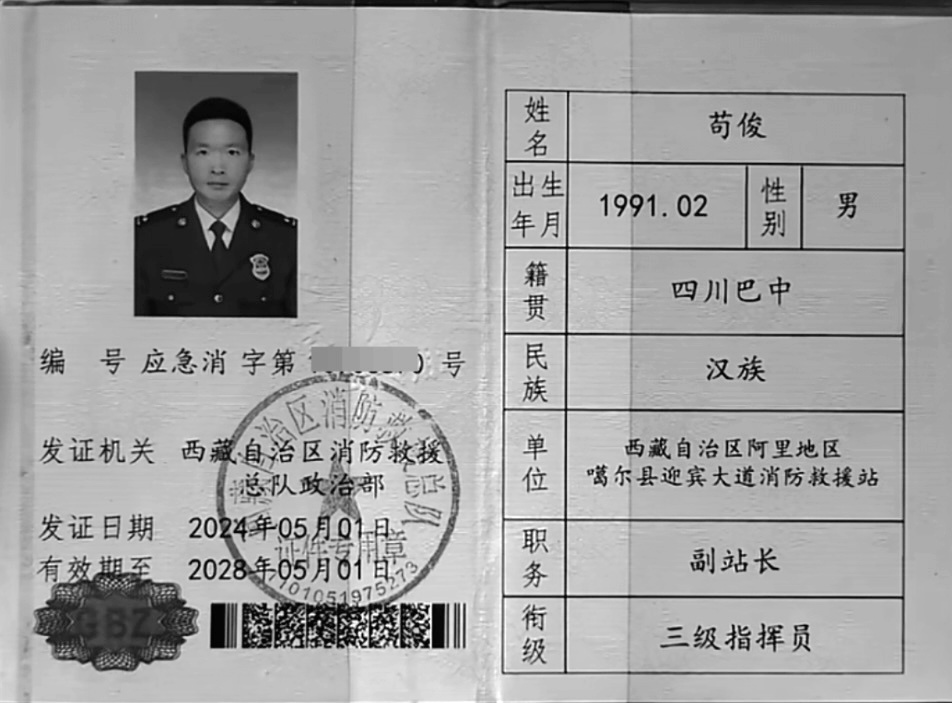 编 号 应急消 字第 号
发证机关 西藏自治区消防救援
总队政治部
发证日期 2024年05月01日
有效期至 2028年05月01日
证件专用章
101051975273
GBZ
姓名 苟俊
出生年月 1991.02 性别 男
籍贯 四川巴中
民族 汉族
单位 西藏自治区阿里地区
噶尔县迎宾大道消防救援站
职务 副站长
衔级 三级指挥员